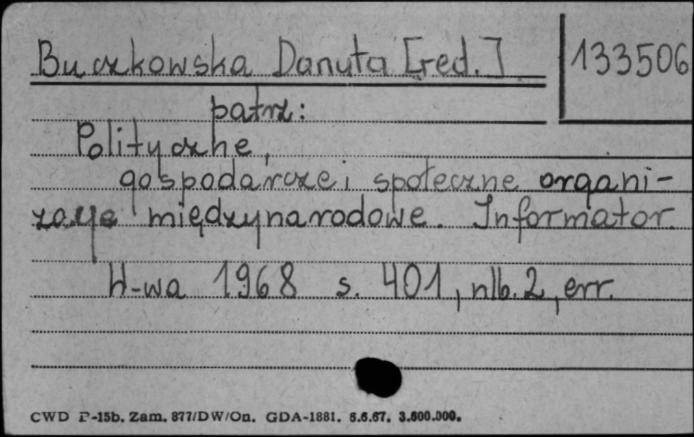 Buczkowska Danuta [red.]
133506
patrz:
Polityczne,
gospodarcze i społeczne organi-
zacje międzynarodowe. Informator.
W-wa 1968 s. 401, nlb. 2, err.
CWD P-15b. Zam. 877/DW/On. GDA-1881. 5.6.67. 3.600.000.